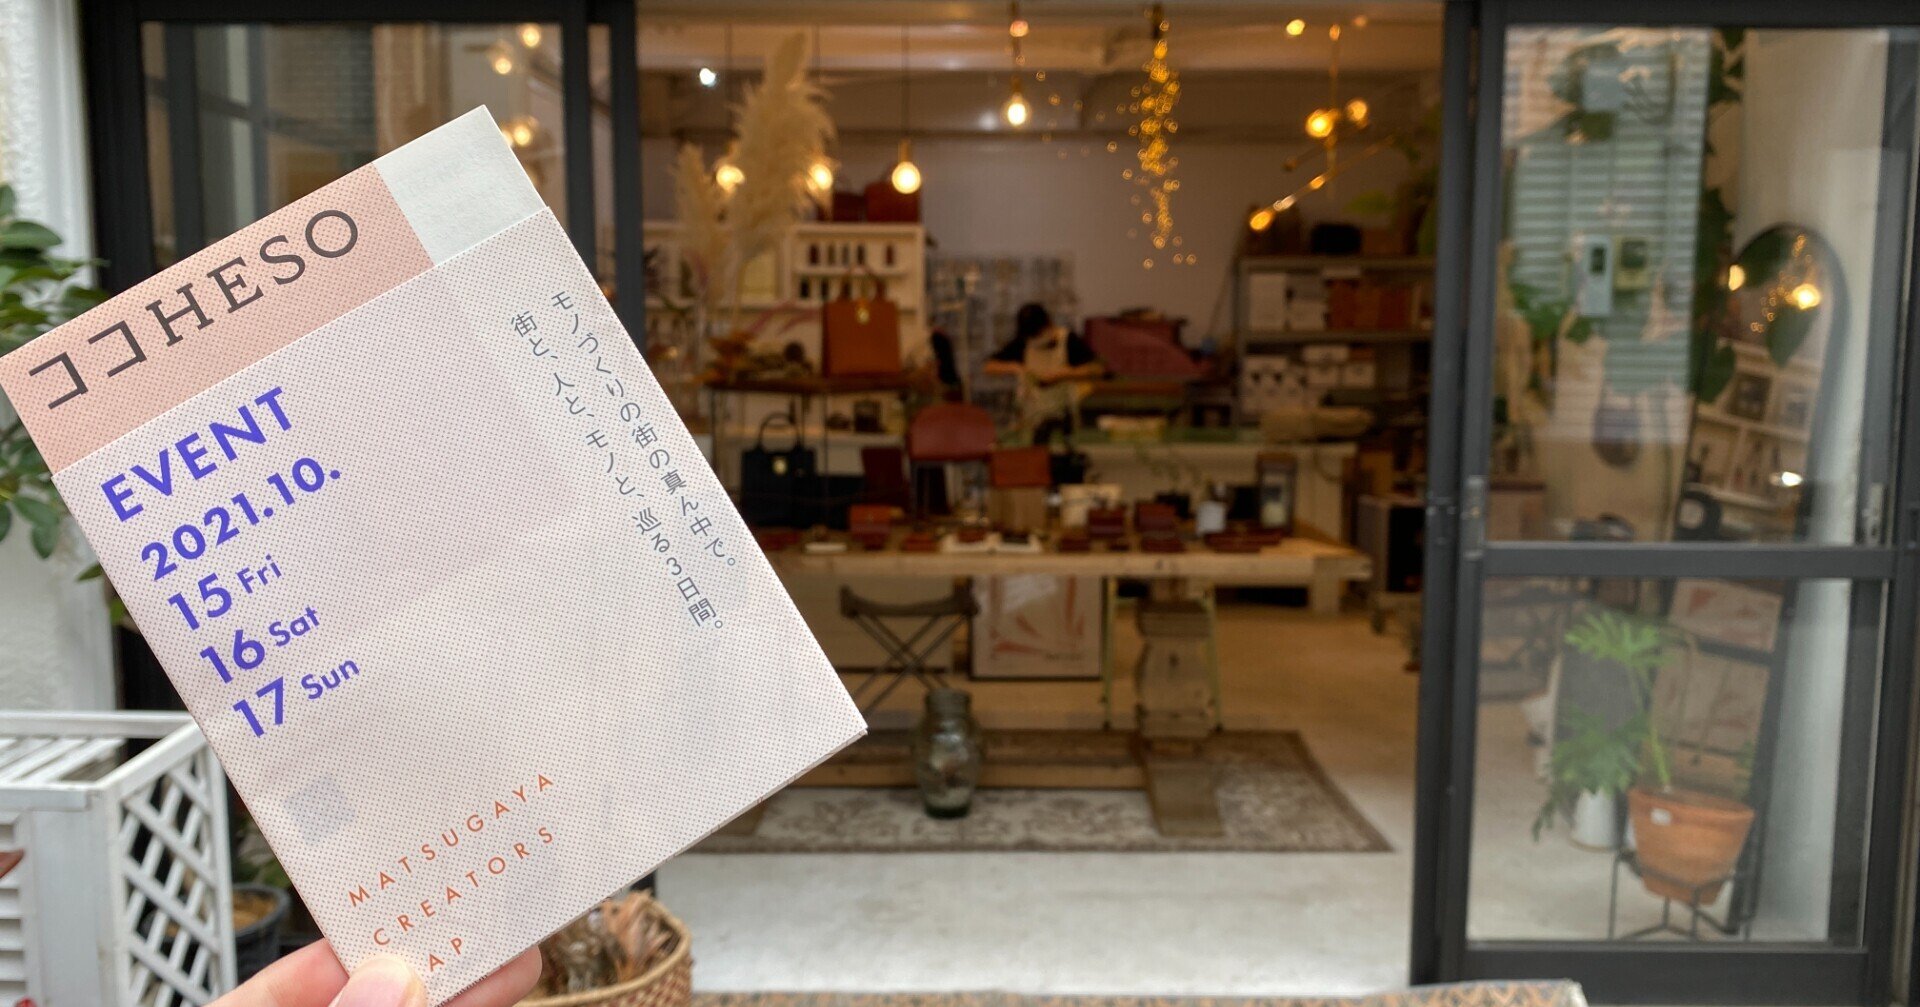 ココHESO
EVENT
2021.10.
15 Fri
16 Sat
17 Sun
モノづくりの街の真ん中で。
街と、人と、モノと、巡る3日間。
MATSUGAYA
CREATORS
AP